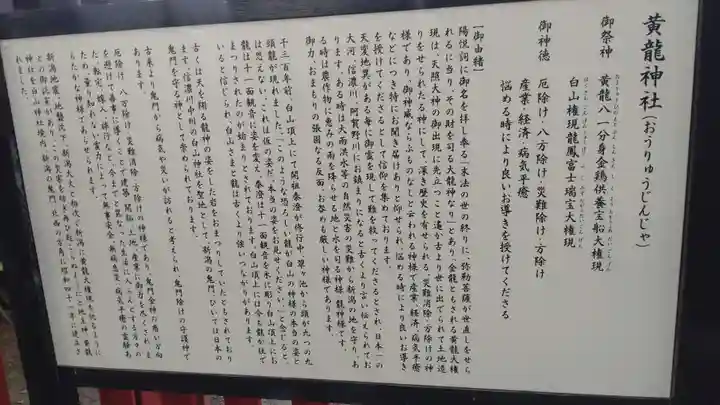 黄龍神社(おうりゅうじんじゃ)
御祭神 黄龍八一分身金鶏供養宝船大権現
白山権現龍鳳富士瑞宝大権現
御神徳 厄除け・八方除け・災難除け・方除け
産業・経済・病気平癒
悩める時により良いお導きを授けてくださる
【御由緒】
陽悦詞に御名を拝し奉る「末法の世の終りに、弥勒菩薩が世直しをせら
れるに当り、その財を司る大龍神なり」とあり、金龍ともされる黄龍大権
現は、天照大神の御出現に先立つこと遥か古より世に出でられて土地造
りをせられたる神にして、深き歴史を有せられる、災難除け・方除けの神
様であり、御神威ならぶものなしと云われる神様で産業、経済、病気平癒
などにつき特にお聞き届けありと仰せられ、悩める時により良いお導き
を授けてくださるとして信仰を集めております。
天変地異がある毎に御霊を現して難を救ってくださるとされ、日本一の
大河、信濃川、阿賀野川にお鎮まりになると古くより言い伝えられてお
ります。ある時は大雨洪水等の自然災害の災難から新潟の地を守り、あ
る時は農作物に恵みの雨を降らせる地と水を司る神様、龍神様です。
御力、おまもりの強固なる反面、お咎めも厳しい神様であります。
千三百年前、白山頂上にて開祖泰澄が修行中、翠ヶ池から頭が九つの九
頭龍が現れました。「このような恐ろしい龍が白山の神様の本当の姿と
は思えない、これは仮の姿だ、本当の姿をお見せください」と念じると、
龍は十一面観音に姿を変え、泰澄は十一面観音を木に彫り白山頂上にお
まつりされたのが始まりとされております。白山頂上には今も龍が棲で
いると信じられ、白山さまと龍は古くより強いつながりがあります。
古くは天を翔る龍神の姿をした岩をおまつりしていたともされており
ます。信濃川中州の白山神社を聖地として、新潟の鬼門、ひいては日本の
鬼門を守る神として崇められております。
古来より鬼門から病気や災いが訪れると考えられ、鬼門除けの守護神で
厄除け、八方除け、災難消除、方除けの神様であり、鬼門金神の悪い方向
を避けて幸せに導くことで建築、開鑿、土地、産業に御力を尽くされ